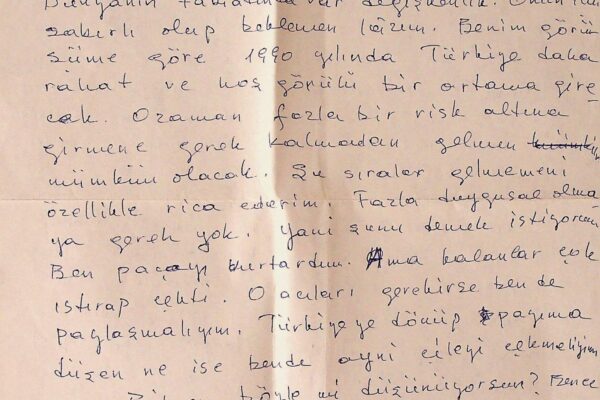 Dünyanın tabiatında var değişkenlik. Onun için
sabırlı olup beklemen lâzım. Benim görü-
süme göre 1990 yılında Türkiye daha
rahat ve hoş görülü bir ortama gire-
cek. Ozaman fazla bir risk altına
girmene gerek kalmadan gelmen
mümkün olacak. Şu sıralar gelmemeni
özellikle rica ederim. Fazla duygusal olma-
ya gerek yok. Yani şunu demek istiyorum
Ben paçayı kurtardım. Ama kalanlar çok
ıstırap çekti. O acıları gerekirse ben de
paylaşmalıyım. Türkiye ye dönüp payıma
düşen ne ise bende ayni çileyi çekmeliyim
böyle mi düşünüyorsun? Bence